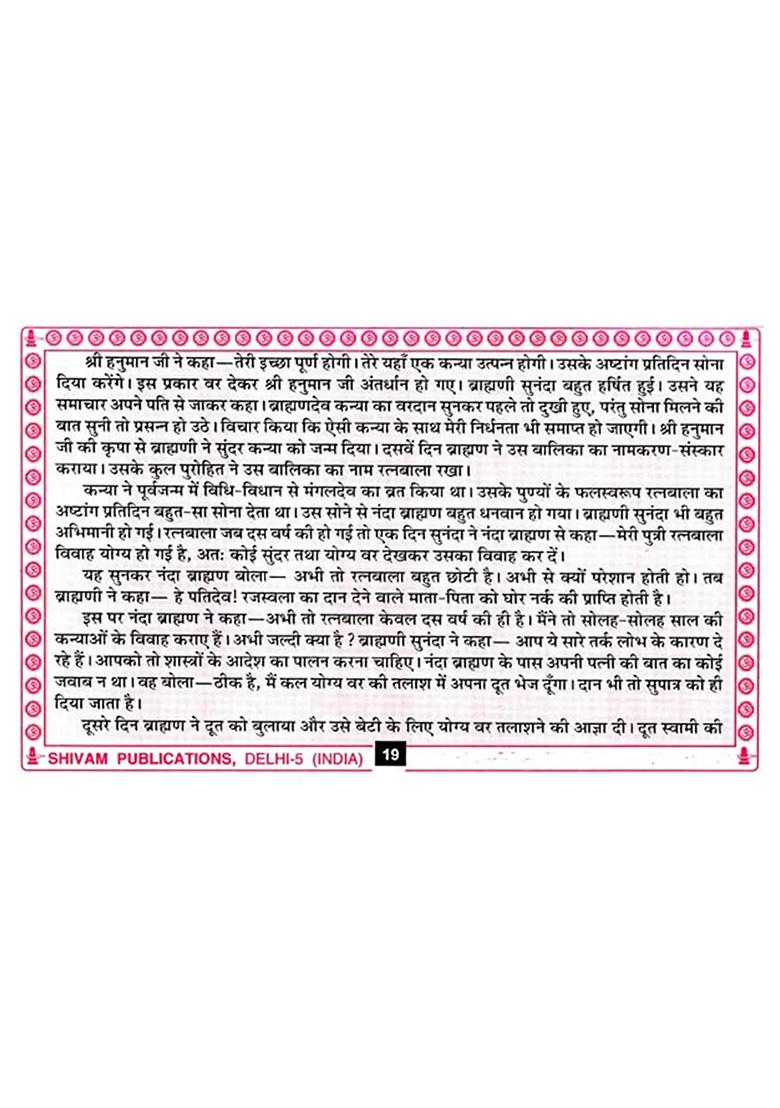 श्री हनुमान जी ने कहा—तेरी इच्छा पूर्ण होगी। तेरे यहाँ एक कन्या उत्पन्न होगी। उसके अष्टांग प्रतिदिन सोना
दिया करेंगे। इस प्रकार वर देकर श्री हनुमान जी अंतर्धान हो गए। ब्राह्मणी सुनंदा बहुत हर्षित हुई। उसने यह
समाचार अपने पति से जाकर कहा। ब्राह्मणदेव कन्या का वरदान सुनकर पहले तो दुखी हुए, परंतु सोना मिलने की
बात सुनी तो प्रसन्न हो उठे। विचार किया कि ऐसी कन्या के साथ मेरी निर्धनता भी समाप्त हो जाएगी। श्री हनुमान
जी की कृपा से ब्राह्मणी ने सुंदर कन्या को जन्म दिया। दसवें दिन ब्राह्मण ने उस बालिका का नामकरण-संस्कार
कराया। उसके कुल पुरोहित ने उस बालिका का नाम रत्नबाला रखा।
कन्या ने पूर्वजन्म में विधि-विधान से मंगलदेव का व्रत किया था। उसके पुण्यों के फलस्वरूप रत्नबाला का
अष्टांग प्रतिदिन बहुत-सा सोना देता था। उस सोने से नंदा ब्राह्मण बहुत धनवान हो गया। ब्राह्मणी सुनंदा भी बहुत
अभिमानी हो गई। रत्नबाला जब दस वर्ष की हो गई तो एक दिन सुनंदा ने नंदा ब्राह्मण से कहा—मेरी पुत्री रत्नबाला
विवाह योग्य हो गई है, अतः कोई सुंदर तथा योग्य वर देखकर उसका विवाह कर दें।
यह सुनकर नंदा ब्राह्मण बोला— अभी तो रत्नबाला बहुत छोटी है। अभी से क्यों परेशान होती हो। तब
ब्राह्मणी ने कहा— हे पतिदेव! रजस्वला का दान देने वाले माता-पिता को घोर नर्क की प्राप्ति होती है।
इस पर नंदा ब्राह्मण ने कहा—अभी तो रत्नबाला केवल दस वर्ष की ही है। मैंने तो सोलह-सोलह साल की
कन्याओं के विवाह कराए हैं। अभी जल्दी क्या है? ब्राह्मणी सुनंदा ने कहा— आप ये सारे तर्क लोभ के कारण दे
रहे हैं। आपको तो शास्त्रों के आदेश का पालन करना चाहिए। नंदा ब्राह्मण के पास अपनी पत्नी की बात का कोई
जवाब न था। वह बोला—ठीक है, मैं कल योग्य वर की तलाश में अपना दूत भेज दूँगा। दान भी तो सुपात्र को ही
दिया जाता है।
दूसरे दिन ब्राह्मण ने दूत को बुलाया और उसे बेटी के लिए योग्य वर तलाशने की आज्ञा दी। दूत स्वामी की
SHIVAM PUBLICATIONS, DELHI-5 (INDIA) 19